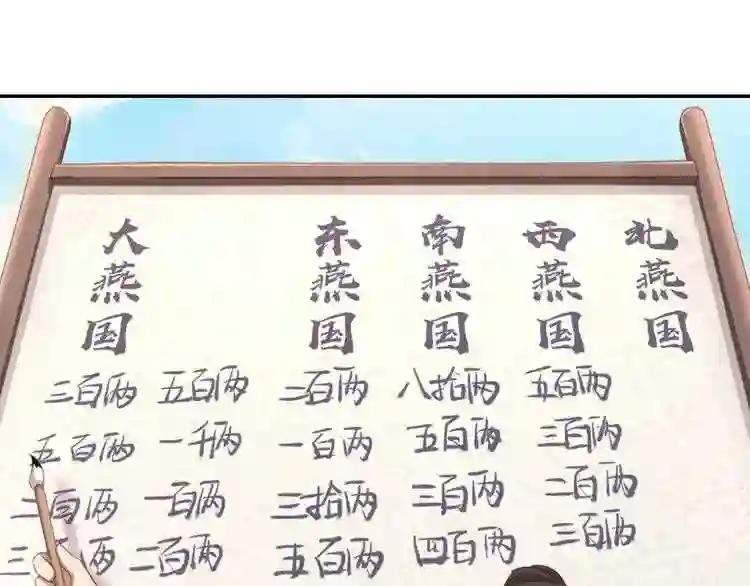 大燕国 东燕国 南燕国 西燕国 北燕国
三百两 五百两 二百两 八拾两 五百两
五百两 一千两 一百两 五百两 三百两
二百两 一百两 三拾两 三百两 二百两
三 两 二百两 五百两 四百两 三百两